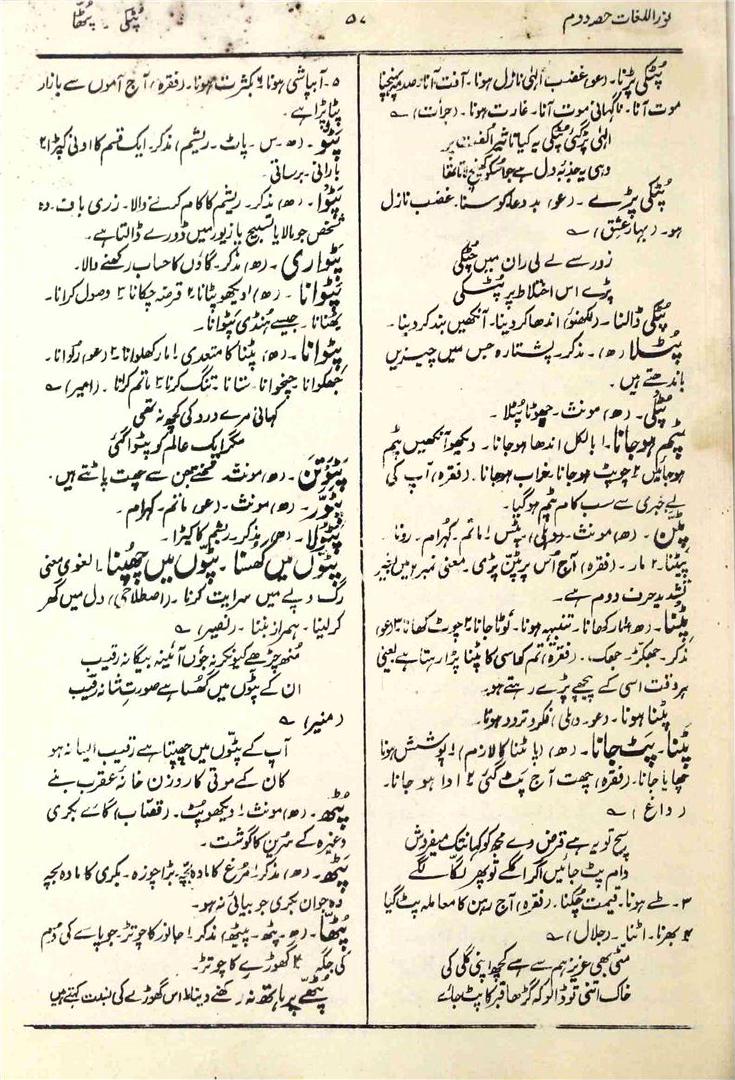 نور اللغات حصہ دوم
۵۷
پُٹکی - پُٹھّا
پُٹکی پڑنا۔ (عو) غضب الٰہی نازل ہونا۔ آفت آنا۔ صدمہ پہنچنا
موت آنا۔ ناگہانی موت آنا۔ غارت ہونا۔ (جرأت) ؎
الٰہی پڑ گئی پُٹکی یہ کیا تاثیر الفت پر
وہی یہ جذبۂ دل ہے جو اسکو کھینچ لاتا تھا
پُٹکی پڑے۔ (عو) بد دعا، کوسنا۔ غضب نازل
ہو۔ (بہار عشق) ؎
زور سے لے لی ران میں چٹکی
پڑے اس اختلاط پر پُٹکی
پُٹکی ڈالنا۔ (لکھنؤ) اندھا کر دینا۔ آنکھیں بند کر دینا۔
پُٹلا (ھ)۔ مذکر۔ پشتارہ جس میں چیزیں
باندھتے ہیں۔
پُٹلی۔ (ھ) مونث۔ چھوٹا پُٹلا۔
پٹم ہو جانا۔ ۱ بالکل اندھا ہو جانا۔ دیکھو آنکھیں پٹم
ہو جانا ۲ چوپٹ ہو جانا۔ خراب ہو جانا۔ (فقرہ) آپ کی
بے خبری سے سب کام پٹم ہو گیا۔
پِٹَّن۔ (ھ) مونث۔ (دہلی) پِٹَّس ۱ ماتم۔ کہرام۔ رونا
پیٹنا۔ ۲ مار۔ (فقرہ) آج اُس پر پٹن پڑی۔ معنی نمبر ۲ میں بغیر
تشدید حرف دوم ہے۔
پِٹنا۔ (ھ) ۱ مار کھانا۔ تنبیہ ہونا۔ لوٹا جانا ۲ چوٹ کھانا ۳ (عو)
مذکر۔ جھگڑ۔ جھک۔ (فقرہ) تم کو اسی کا پٹنا پڑا رہتا ہے یعنی
ہر وقت اسی کے پیچھے پڑے رہتے ہو۔
پٹنا ہونا۔ (عو۔ دہلی) فکر و تردد ہونا۔
پَٹنا۔ پَٹ جانا۔ (ھ) (پاٹنا کا لازم) ۱ پوشش ہونا
چھایا جانا۔ (فقرہ) چھت آج پَٹ گئی ۲ ادا ہو جانا۔
(داغ) ؎
سچ تو یہ ہے قرض دے مجھ کو کہاں تک میفروش
دام پٹ جائیں اگر اگلے تو پھر لگّا لگے
۳۔ طے ہونا۔ قیمت چُکنا۔ (فقرہ) آج رہن کا معاملہ پٹ گیا
۴ بھرنا۔ اٹنا۔ (جلال) ؎
مٹی بھی عزیز ہم سے ہے کچھ اپنی گلی کی
خاک اتنی تو ڈالو کہ گڑھا قبر کا پٹ جائے
۵۔ آبپاشی ہونا ۶ بکثرت ہونا۔ (فقرہ) آج آموں سے بازار
پٹا پڑا ہے۔
پَٹّو۔ (ھ۔ س۔ پاٹ۔ ریشم) مذکر۔ ایک قسم کا اونی کپڑا ۲
بارانی۔ برساتی۔
پَٹوا۔ (ھ) مذکر۔ ریشم کا کام کرنے والا۔ زری باف۔ وہ
شخص جو مالا یا تسبیح یا زیور میں ڈورے ڈالتا ہے۔
پَٹواری۔ (ھ) مذکر۔ گاؤں کا حساب رکھنے والا۔
پَٹوانا۔ (ھ) ۱ دیکھو پٹانا ۲ قرضہ چکانا ۳ وصول کرانا۔
بھُنانا۔ جیسے ہنڈی پٹوانا۔
پِٹوانا۔ (ھ) پٹنا کا متعدی ۱ مار کھلوانا ۲ (عو) رُکوانا۔
جھکوانا۔ چخوانا۔ ستانا۔ تنگ کرنا ۳ ماتم کرانا۔ (امیر) ؎
کہانی مرے درد کی کچھ نہ تھی
مگر ایک عالم کو پٹوا گئی
پَٹَوتَن۔ (ھ) مونث۔ تختے جن سے چھت پاٹتے ہیں۔
پٹور۔ (ھ) مونث۔ (عو) ماتم۔ کہرام۔
پٹولا۔ (ھ) مذکر۔ ریشم کا کپڑا۔
پٹّوں میں گھسنا۔ پٹّوں میں چھپنا ۱ لغوی معنی
رگ و پے میں سرایت کرنا۔ (اصطلاحی) دل میں گھر
کر لینا۔ ہمراز بننا۔ (نصیر) ؎
منھ چڑھے کیونکر نہ جوں آئینہ بیگانہ رقیب
ان کے پٹّوں میں گھسا ہے صورت شانہ رقیب
(منیر) ؎
آپ کے پٹّوں میں چھپتا ہے رقیب ایسا نہ ہو
کان کے موتی کا روزن خانۂ عقرب بنے
پُٹھ۔ (ھ) مونث ۱ دیکھو پُٹ۔ (قصاب) گائے بکری
وغیرہ کے سرین کا گوشت۔
پَٹھ۔ (ھ) مذکر ۱ مرغ کا مادہ بچّہ۔ بڑا چوزہ۔ بکری کا مادہ بچہ
وہ جوان بکری جو بیائی نہ ہو۔
پُٹھّا۔ (ھ۔ پٹھ۔ پیٹھ) مذکر ۱ جانور کا چوتڑ۔ چوپائے کی دُم
کی جگہ ۲ گھوڑے کا چوتڑ۔
پٹھے پر ہاتھ نہ رکھنے دینا ۱ اس گھوڑے کی نسبت کہتے ہیں